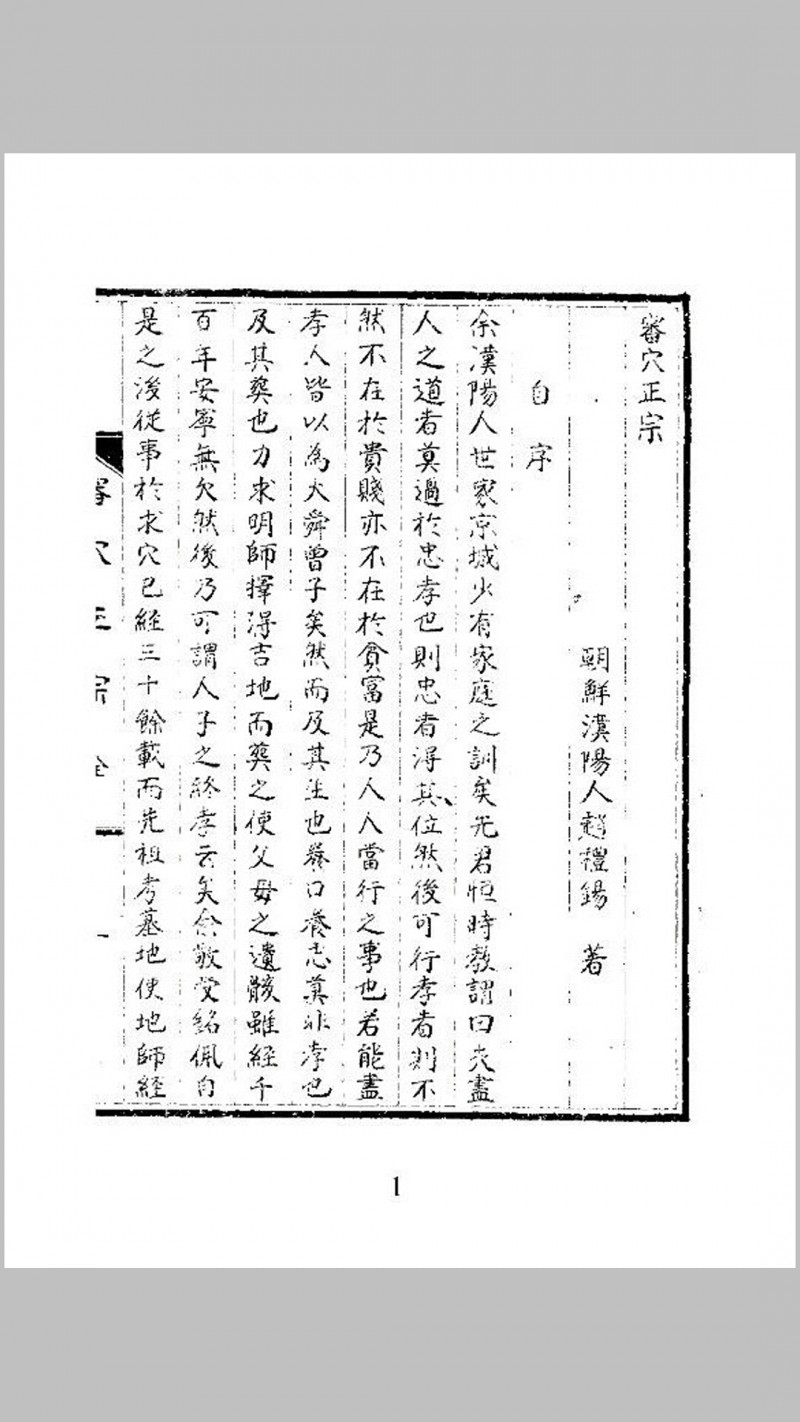 審穴正宗
朝鮮漢陽人趙禮錫 著
自序
余漢陽人世家京城少有家庭之訓矣先君恒時教謂曰夫盡
人之道者莫過於忠孝也則忠者得其位然後可行孝者則不
然不在於貴賤亦不在於貧富是乃人人當行之事也若能盡
孝人皆以為大舜曾子矣然而及其生也養口養志莫非孝也
及其葬也力求明師擇得吉地而葬之使父母之遺骸雖經千
百年安寧無欠然後乃可謂人子之終孝云矣余敬受銘佩自
是之後從事於求穴已經三十餘載而先祖考墓地使地師經
審穴正宗全
一
1